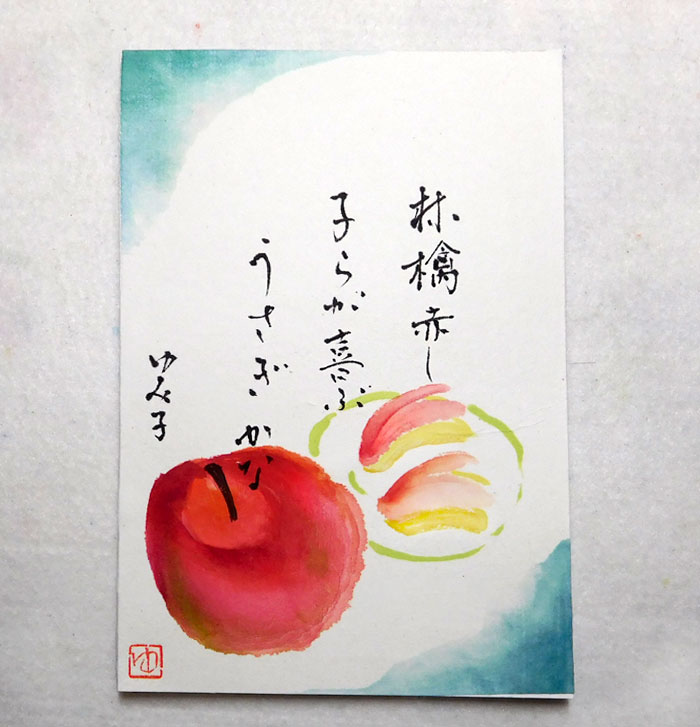 林檎赤し
子らが喜ぶ
うさぎかな
ゆみ子
ゆ